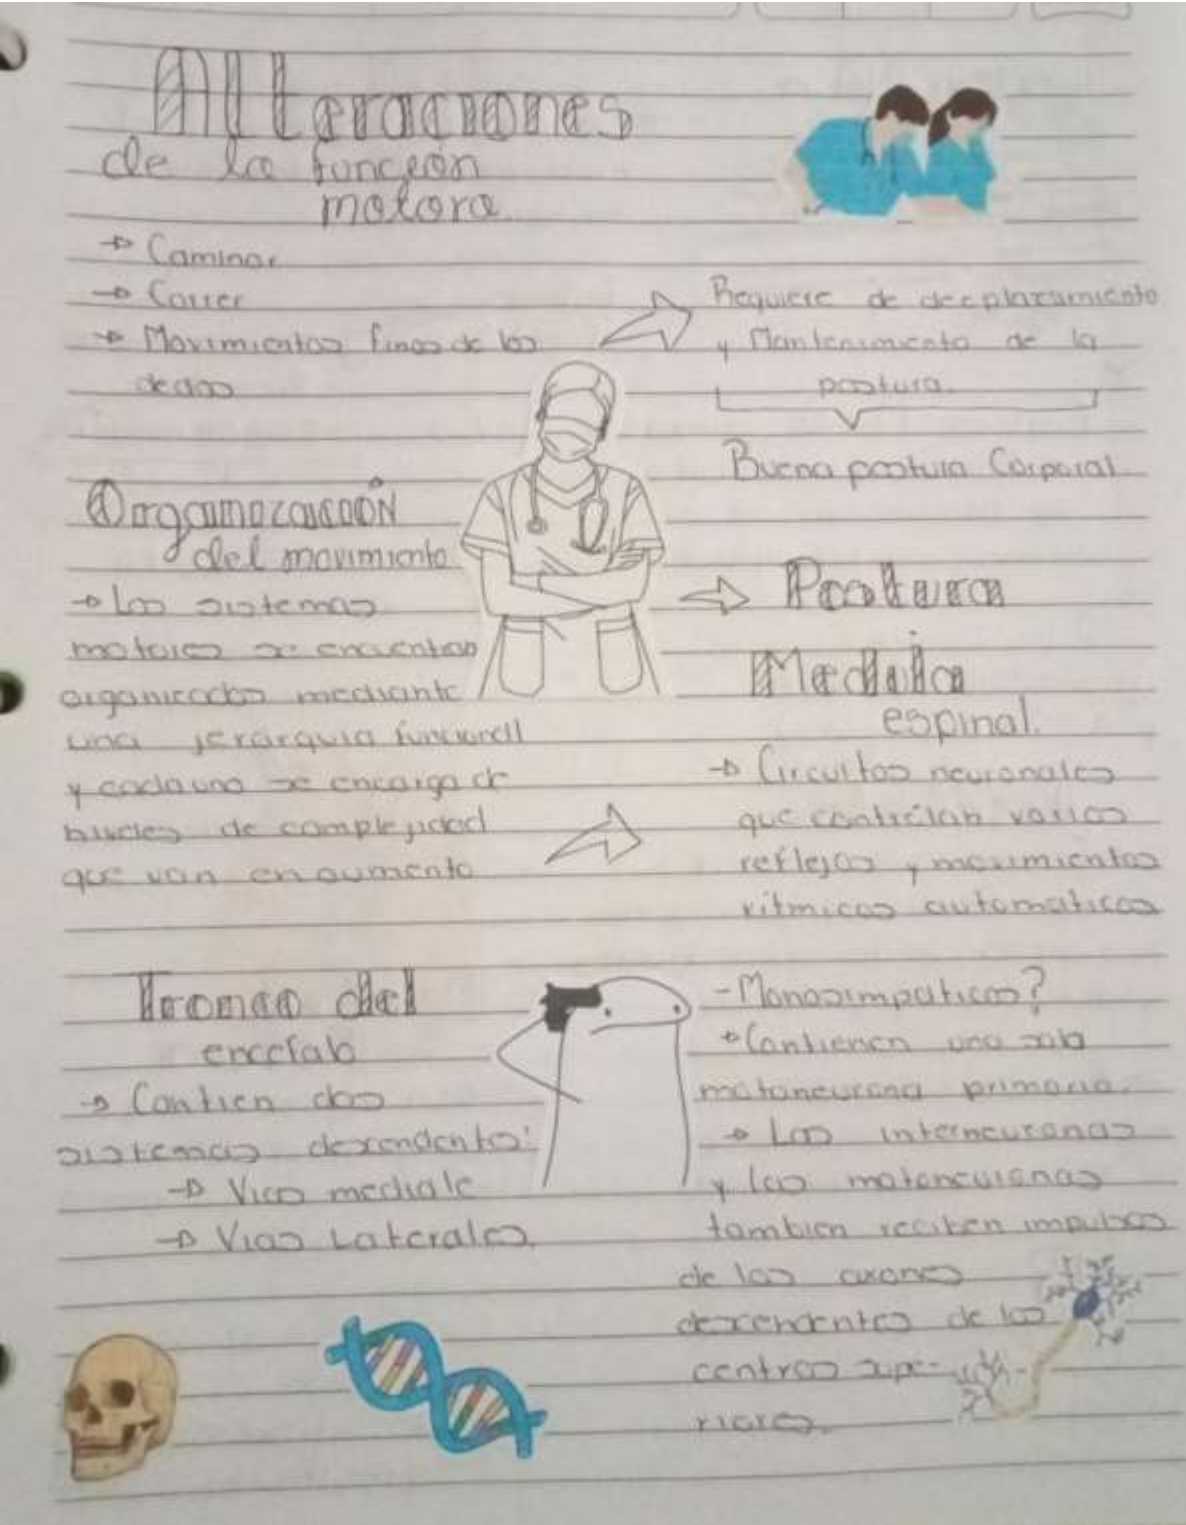 Alteraciones
de la función
motora
→ Caminar
→ Correr
→ Movimientos finos de los
dedos
Requiere de desplazamiento
y Mantenimiento de la
postura.
Buena postura Corporal
Organización
del movimiento
→ Los sistemas
motores se encuentran
organizados mediante
una jerarquia funcional
y cada uno se encarga de
niveles de complejidad
que van en aumento
Postura
Medula
espinal.
→ Circuitos neuronales
que contrólan varios
reflejos y movimientos
ritmicos automaticos
Tronco del
encefalo
→ Contien dos
sistemas descendentes:
→ Vias mediale
→ Vias Laterales.
- Monosimpaticos?
→ Contienen una sola
motoneurona primaria.
→ Las interneuronas
y las motoneuronas
tambien reciben impulsos
de los axones
descendentes de los
centros supe-
riores.